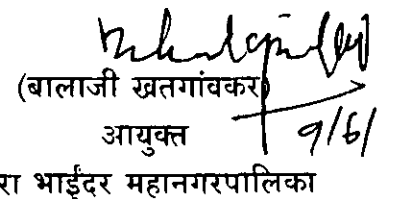 (बालाजी खतगांवकर)
आयुक्त
9/6/
रा भाईंदर महानगरपालिका